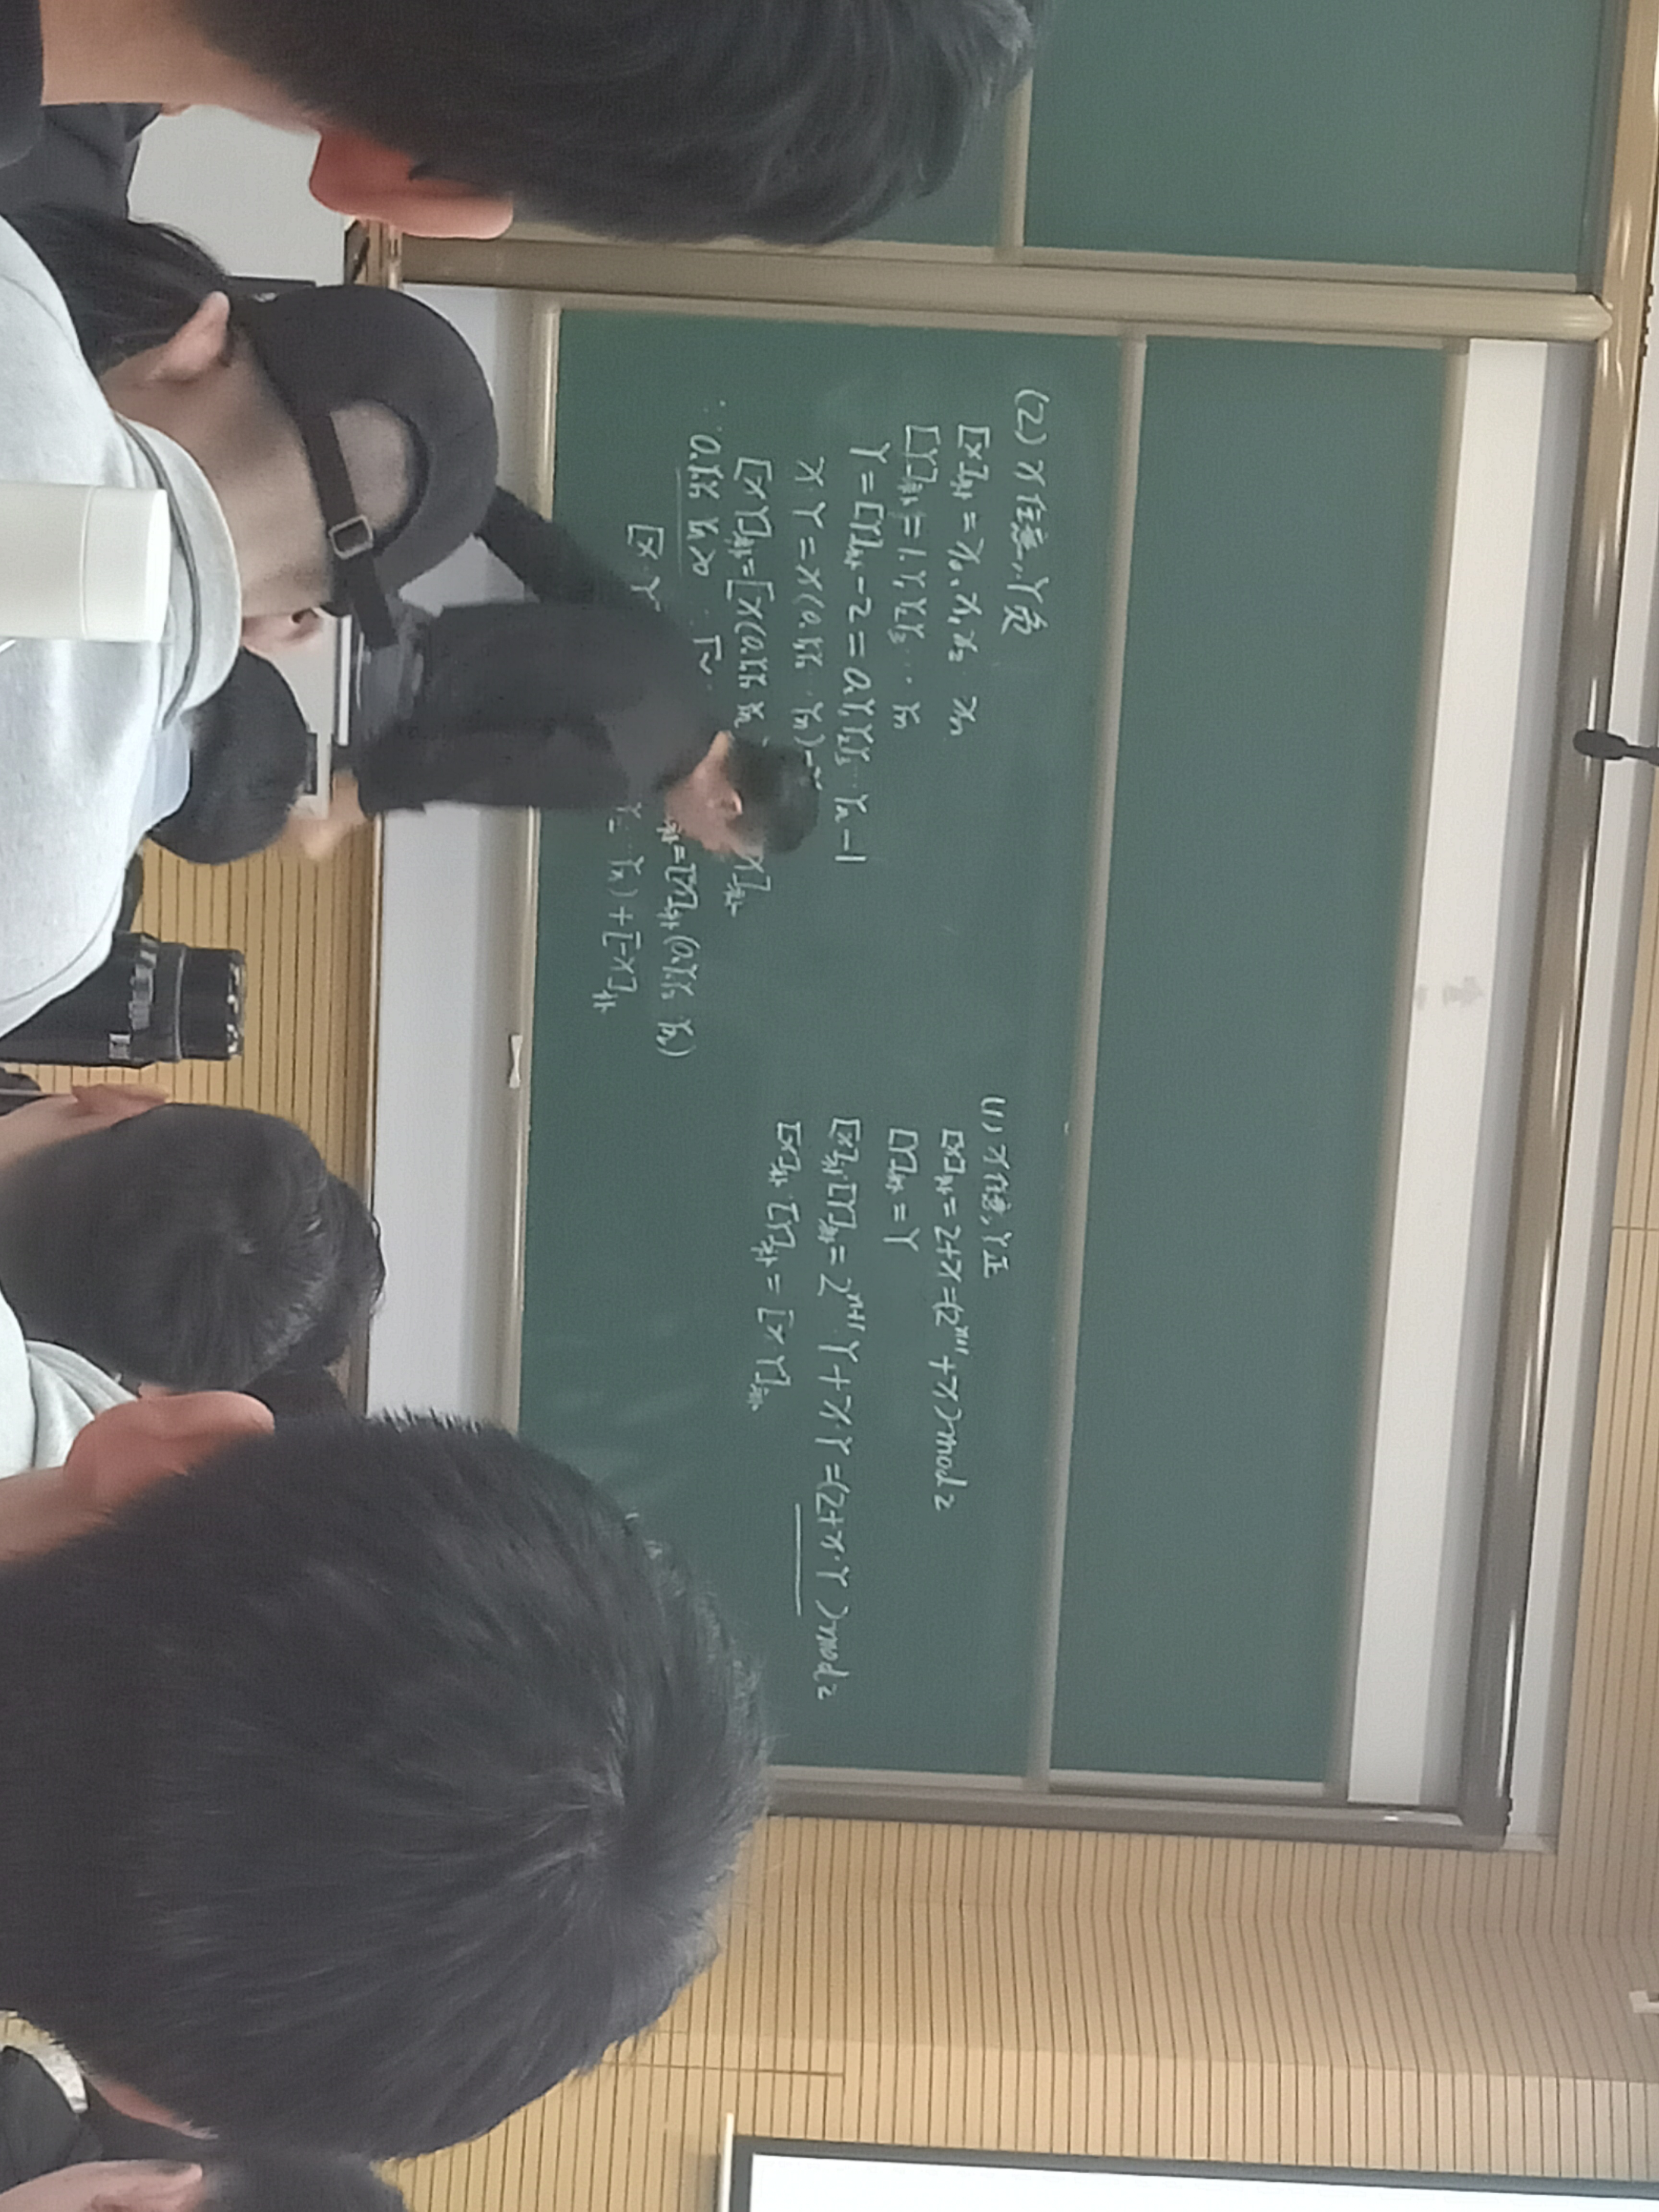 (2) X任意,Y负
[X]补 = X₀.X₁X₂ Xₙ
[Y]补 = 1.Y₁Y₂Y₃ ··· Yₙ
Y = [Y]补 - 2 = 0.Y₁Y₂Y₃ ··· Yₙ - 1
X·Y = X(0.Y₁Y₂ ··· Yₙ) -
[XY]补 = [X(0.Y₁Y₂ Yₙ X]补
∵ 0.Y₁Y₂ Yₙ>0 ∴ [X 补 = [X]补(0.Y₁Y₂ Yₙ)
[X·Y Y₂ ··· Yₙ) + [-X]补
(1) X任意,Y正
[X]补 = 2+X = (2ⁿ⁺¹+X) mod 2
[Y]补 = Y
[X]补·[Y]补 = 2ⁿ⁺¹·Y + X·Y = (2+X·Y) mod 2
[X]补·[Y]补 = [X Y]补